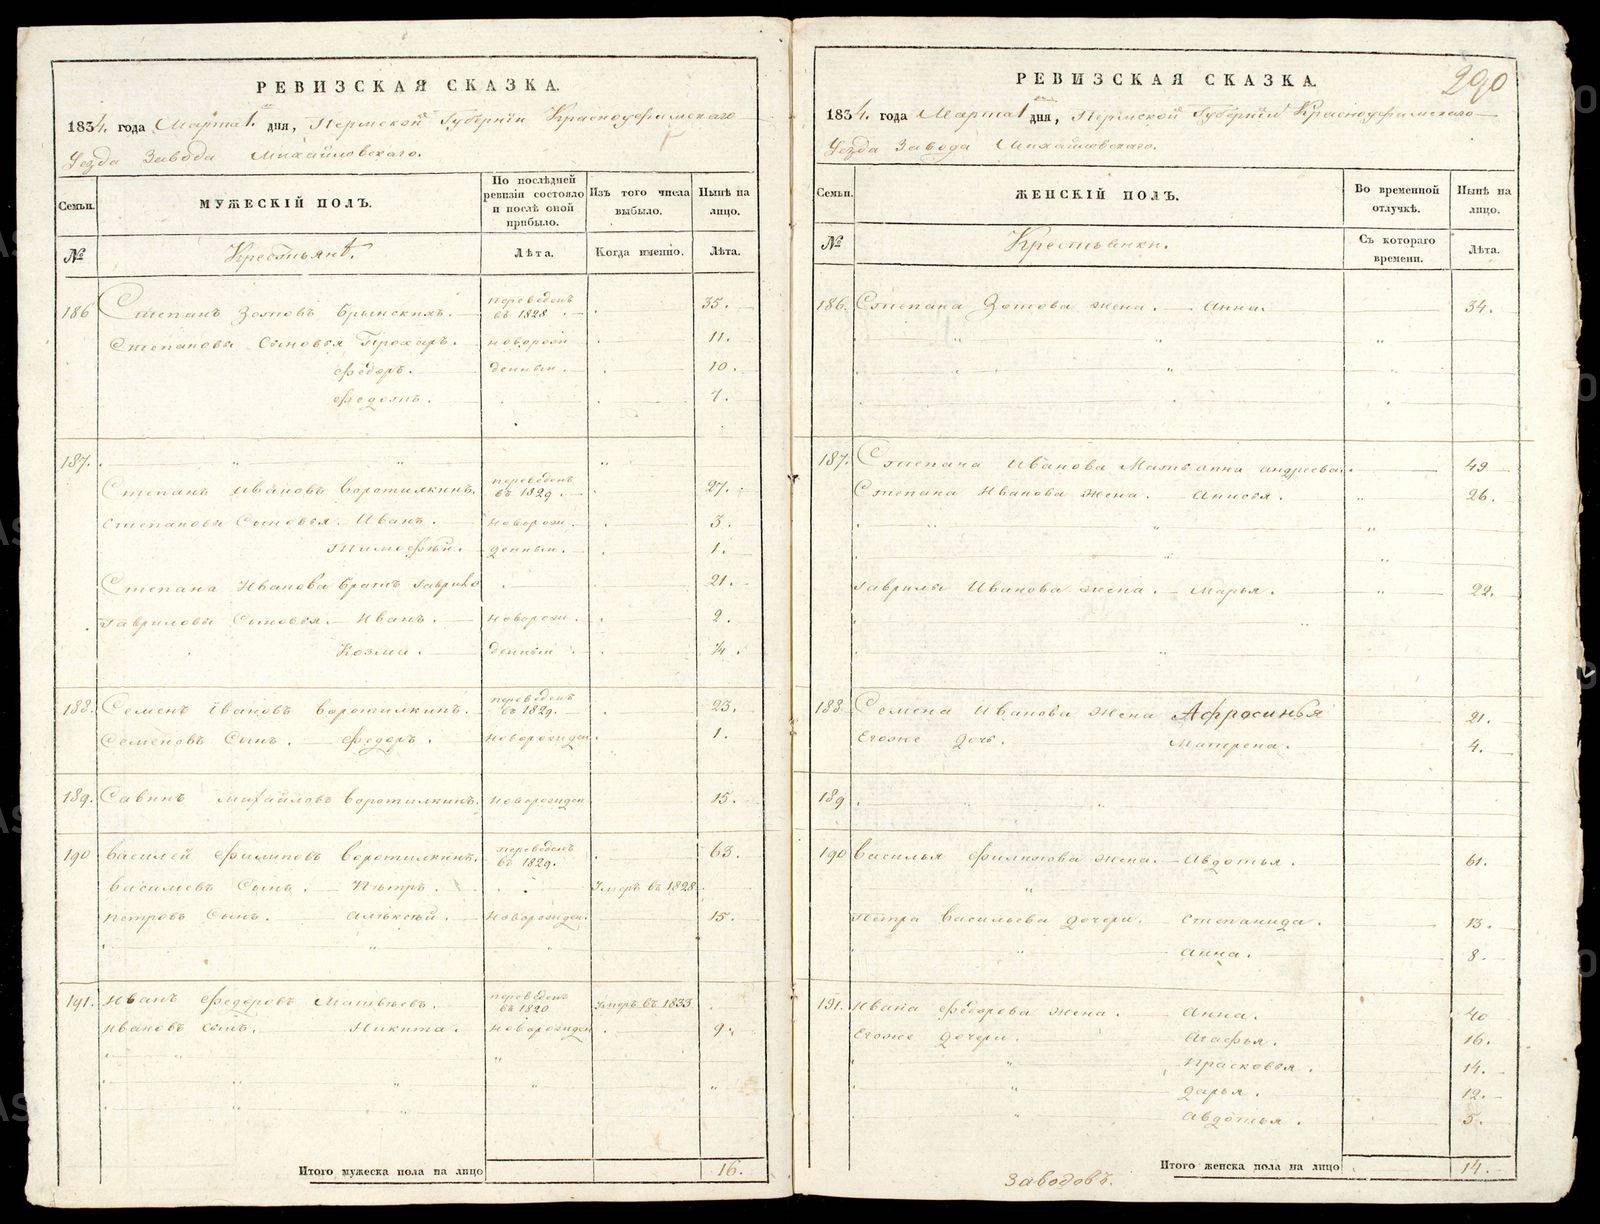 РЕВИЗСКАЯ СКАЗКА.
1834. года Марта 1. дня, Пермской Губернiи Красноуфимскаго
Уезда Завода Михайловскаго.
Семьи.
МУЖЕСКІЙ ПОЛЪ.
По послѣдней ревизіи состояло и послѣ оной прибыло.
Изъ того числа выбыло.
Нынѣ на лицо.
№
Крестьянъ.
Лѣта.
Когда именно.
Лѣта.
186 Степанъ Зотовъ переведенъ въ 1828. 35.
Степановы Сыновья Прохоръ. новорож 11.
Федоръ. денныи. 10.
Федотъ. 7.
187.
Степанъ Ивановъ Воротилкинъ. переведенъ въ 1829. 27.
Степановы Сыновья. Иванъ. новорож. 3.
Тимофѣй. денныи. 1.
Степана Иванова братъ Гаврило 21.
Гавриловы Сыновья. Иванъ. новорож. 2.
Козма. денныи ¼.
188. Семенъ Ивановъ Воротилкинъ. переведенъ въ 1829. 23.
Семеновъ Сынъ. Федоръ. новорожден. 1.
189. Савинъ Михайловъ Воротилкинъ. новорожден. 15.
190 Василей Филиповъ Воротилкинъ. переведенъ въ 1829. 63.
Васильевъ Сынъ. Пѣтръ. Умеръ въ 1828
Петровъ Сынъ. Алѣксѣй. Новорожден. 15.
191. Иванъ Федоровъ Матвѣевъ. переведенъ въ 1820 Умеръ въ 1833
Ивановъ сынъ. Никита. новорожден 9.
Итого мужеска пола на лицо 16.
290
РЕВИЗСКАЯ СКАЗКА.
1834. года Марта 1 дня, Пермской Губернiи Красноуфимскаго
Уезда Завода Михайловскаго.
Семьи.
ЖЕНСКІЙ ПОЛЪ.
Во временной отлучкѣ.
Нынѣ на лицо.
№
Крестьянки.
Съ котораго времени.
Лѣта.
186. Степана Зотова жена. Анна. 34.
187. Степана Иванова Мать анна андреева. 49
Степана Иванова жена. 26.
Гаврилы Иванова жена. Марья. 22.
188. Семена Иванова жена Афросинья 21.
Егоже дочь. Матрена. 4.
189
190 Василья Филипова жена. Авдотья. 61.
Петра Васильева дочери. Степанида. 13.
Анна. 8.
191. Ивана Федорова жена. Анна. 40
Егоже дочери. Агафья. 16.
Прасковья. 14.
Дарья. 12.
Авдотья. 5.
Итого женска пола на лицо 14.
Заводовъ.